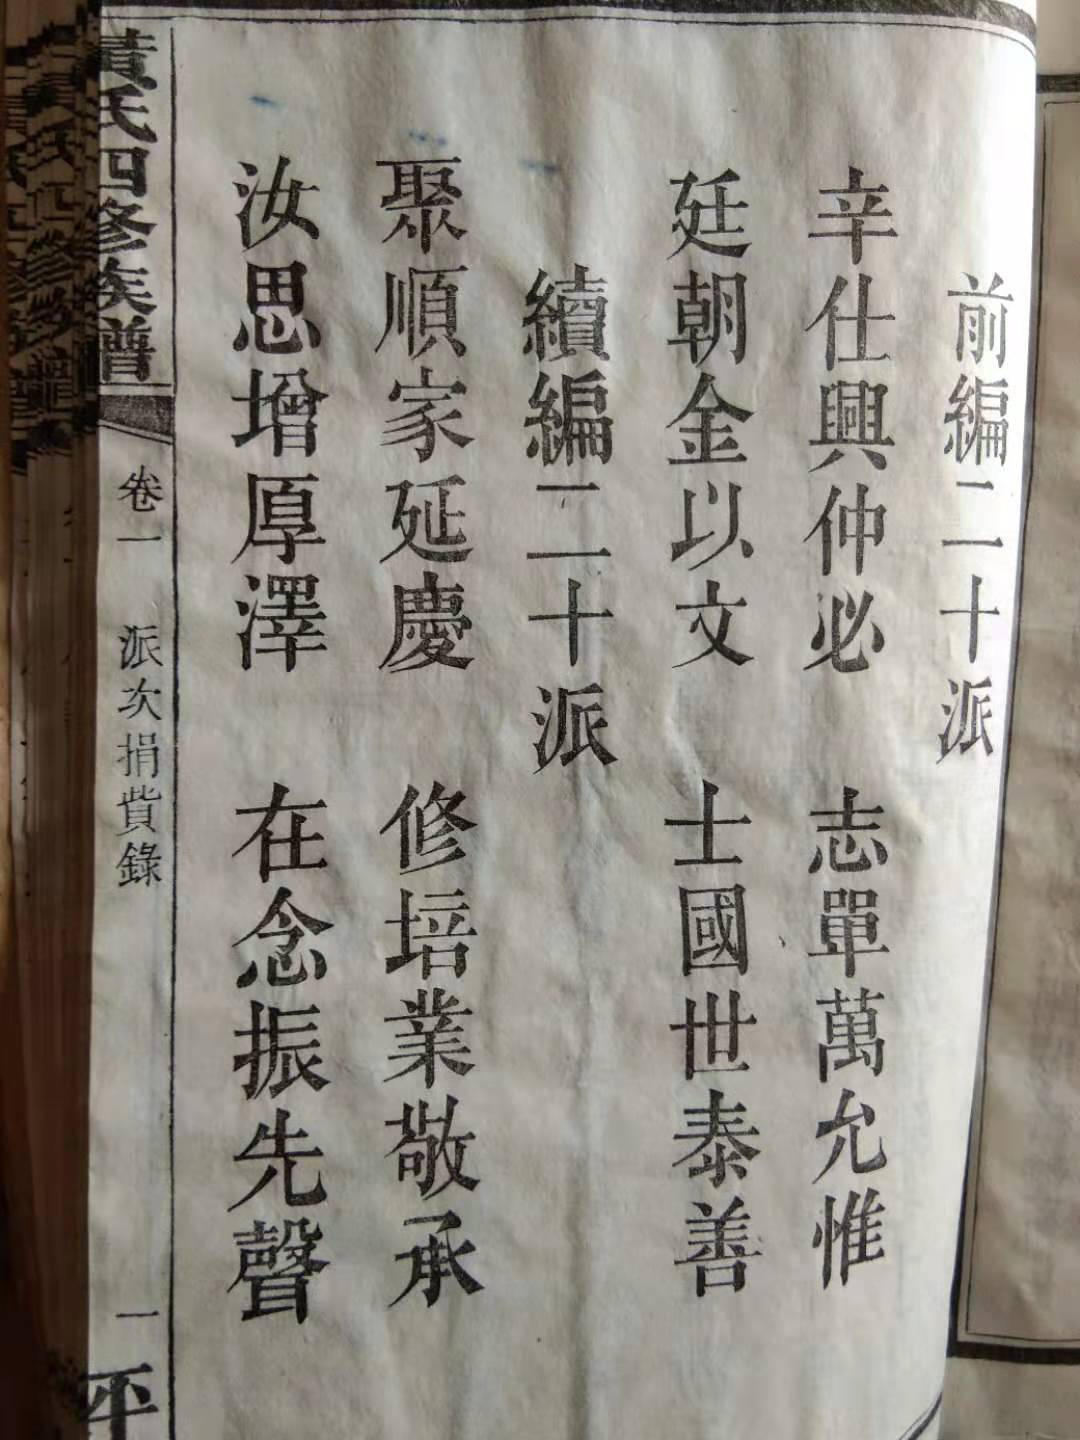 前編二十派
辛仕興仲必 志單萬允惟
廷朝金以文 士國世泰善
續編二十派
聚順家延慶 修培業敬承
汝思增厚澤 在念振先聲
黃氏四修族譜
卷一 派次捐貲錄
一